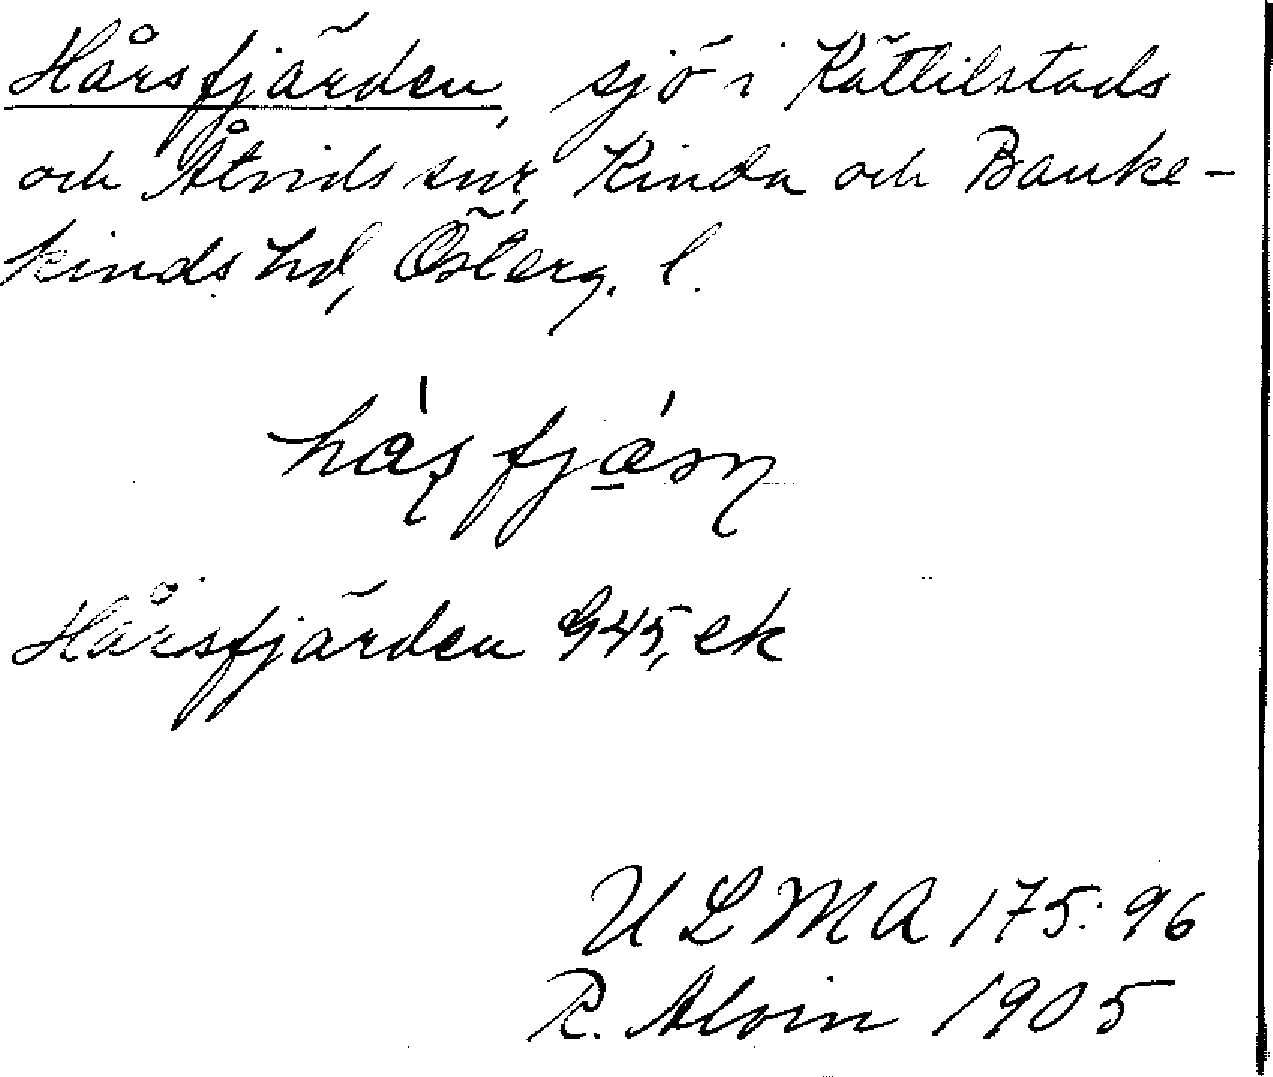 Hårsfjärden, sjö i Kättilstads
och Åtvids snr, Kinda och Banke-
kinds hd, Österg. l.
Hårsfjärden G45, ek
ULMA 175:96
R. Alvin 1905